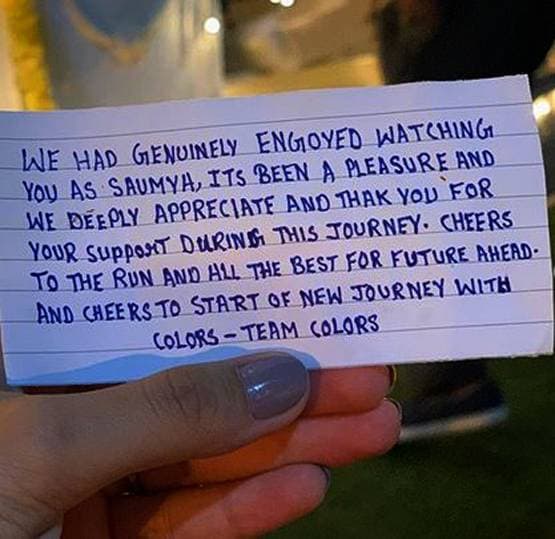 WE HAD GENUINELY ENGOYED WATCHING
YOU AS SAUMYA, ITS BEEN A PLEASURE AND
WE DEEPLY APPRECIATE AND THAK YOU FOR
YOUR SUPPORT DURING THIS JOURNEY. CHEERS
TO THE RUN AND ALL THE BEST FOR FUTURE AHEAD.
AND CHEERS TO START OF NEW JOURNEY WITH
COLORS - TEAM COLORS